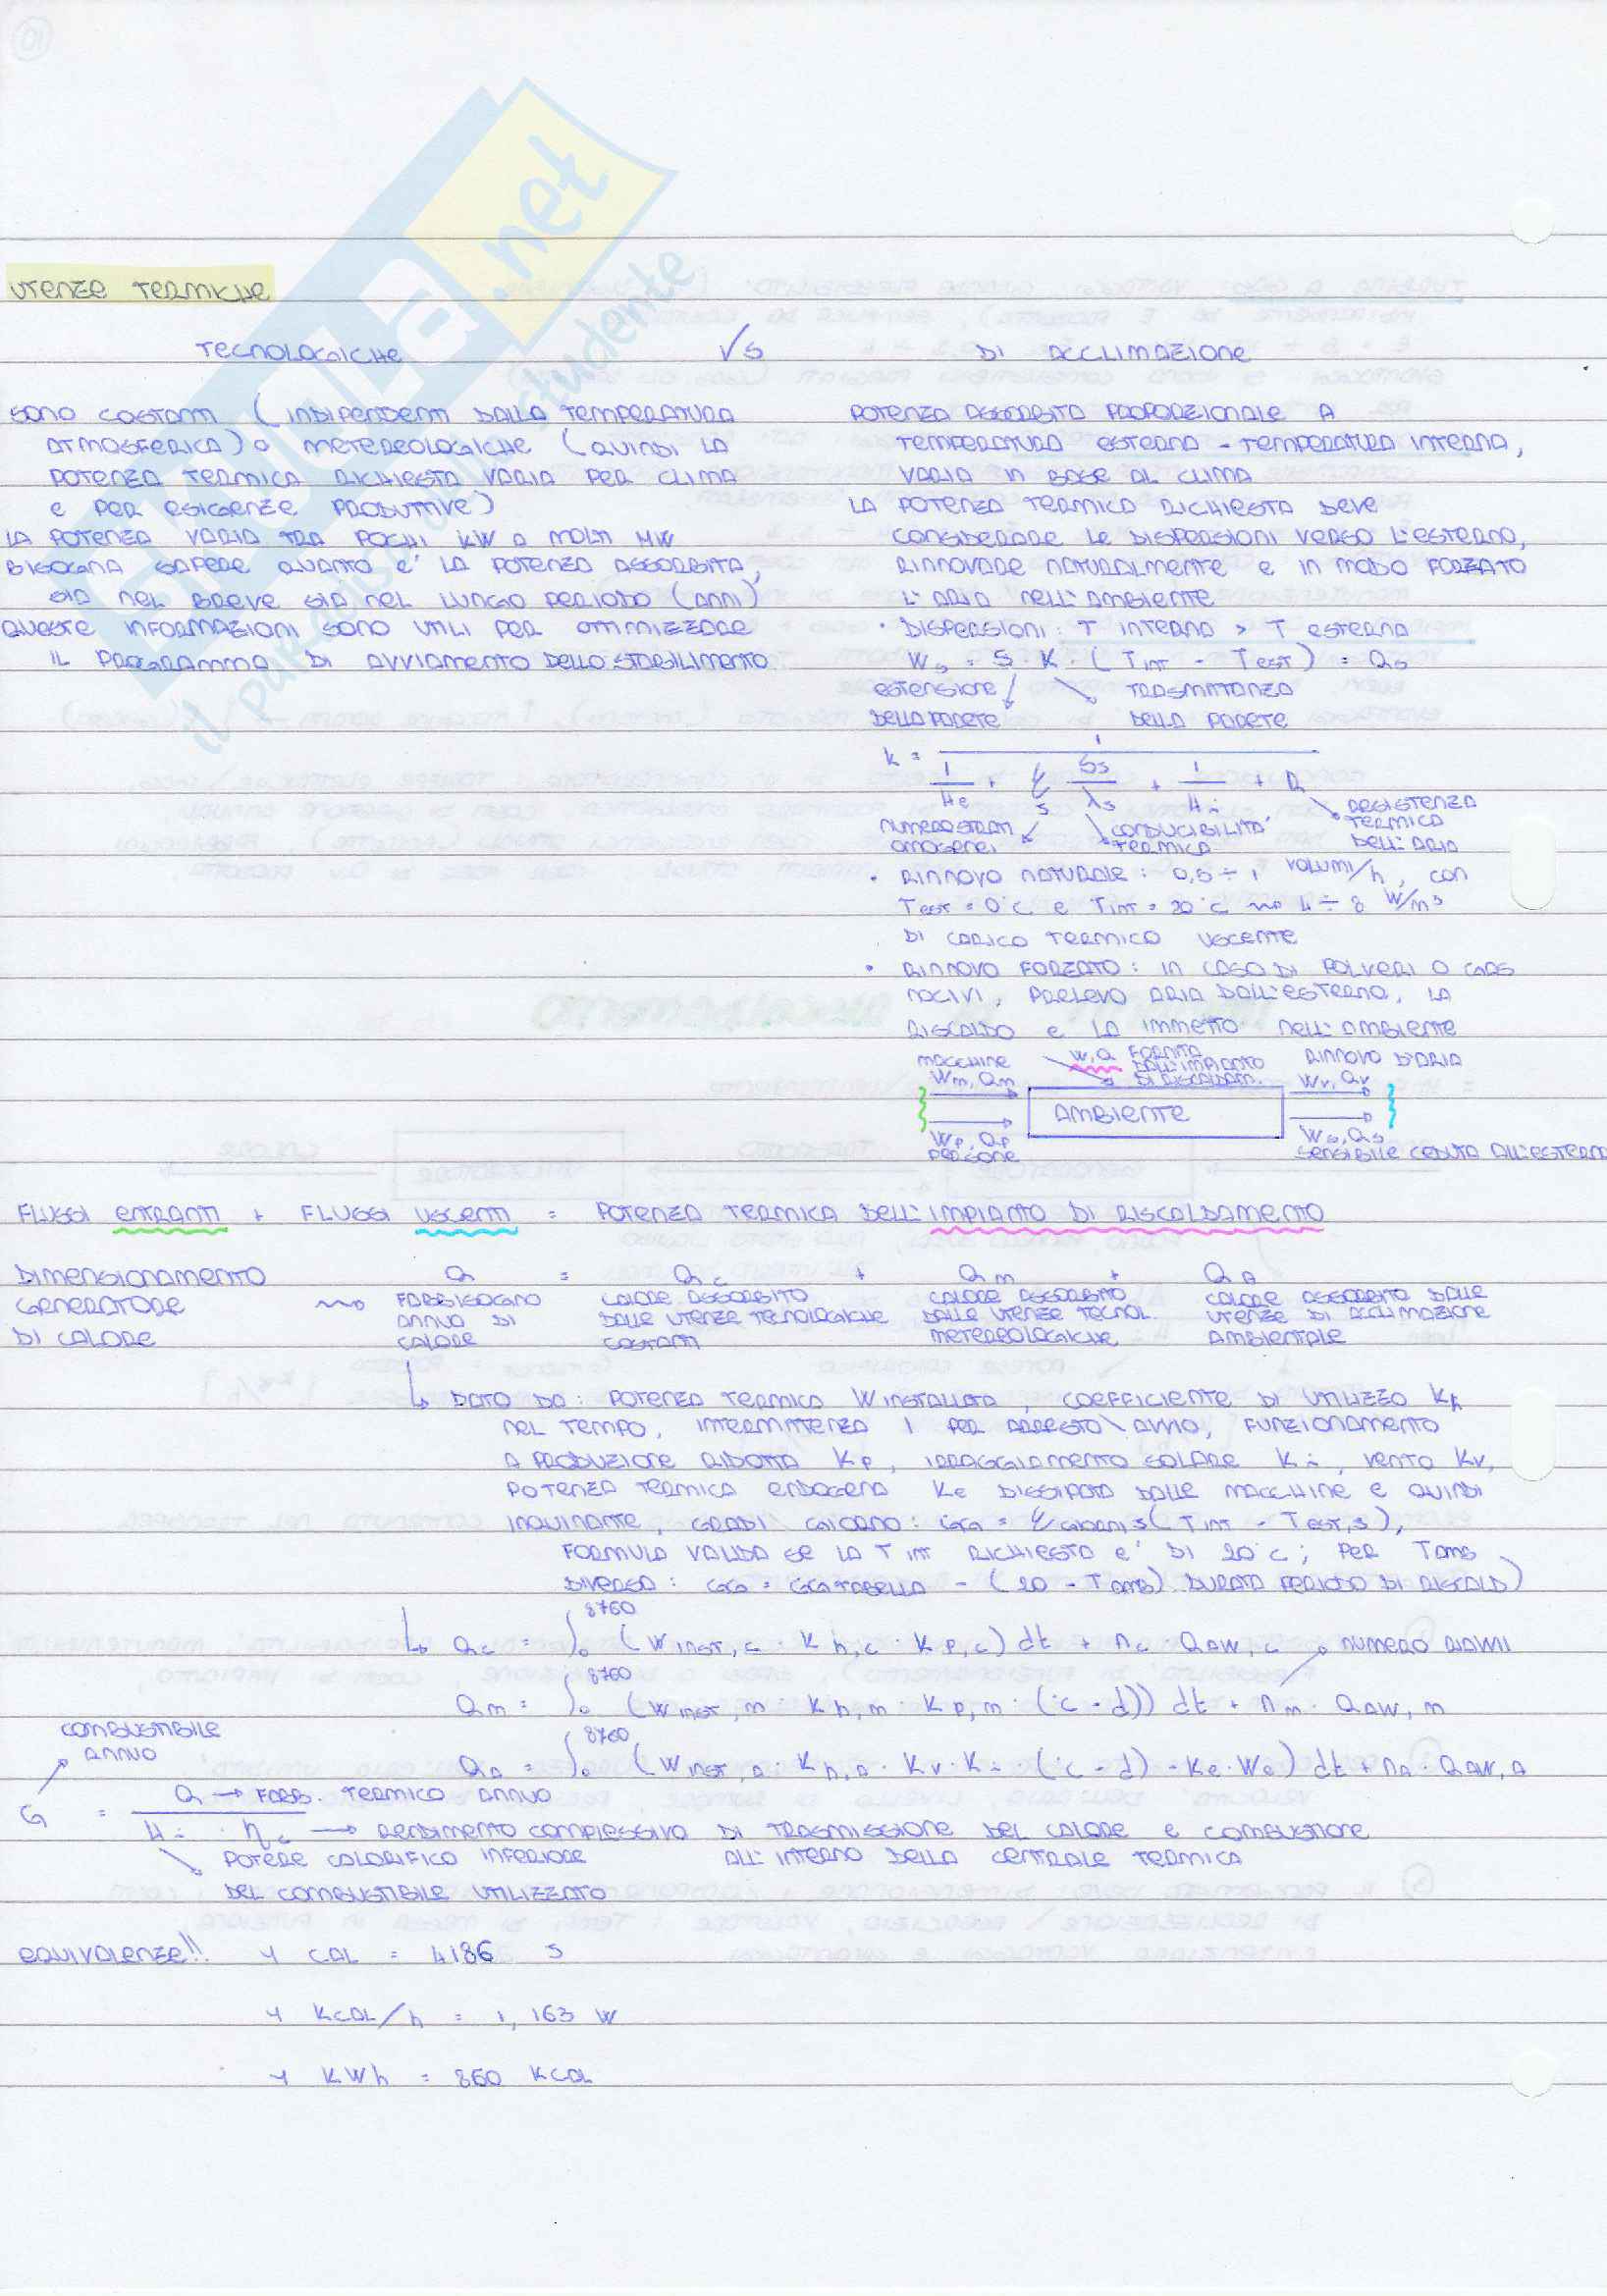 UTENZE TERMICHE
TECNOLOGICHE VS DI ACCLIMAZIONE
SONO COSTANTI (INDIPENDENTI DALLA TEMPERATURA
ATMOSFERICA) O METEREOLOGICHE (QUINDI LA
POTENZA TERMICA RICHIESTA VARIA PER CLIMA
E PER ESIGENZE PRODUTTIVE)
LA POTENZA VARIA TRA POCHI KW A MOLTI MW
BISOGNA SAPERE QUANTO E' LA POTENZA ASSORBITA,
SIA NEL BREVE SIA NEL LUNGO PERIODO (ANNI)
QUESTE INFORMAZIONI SONO UTILI PER OTTIMIZZARE
IL PROGRAMMA DI AVVIAMENTO DELLO STABILIMENTO
POTENZA ASSORBITA PROPORZIONALE A
TEMPERATURA ESTERNA - TEMPERATURA INTERNA,
VARIA IN BASE AL CLIMA
LA POTENZA TERMICA RICHIESTA DEVE
CONSIDERARE LE DISPERSIONI VERSO L'ESTERNO,
RINNOVARE NATURALMENTE E IN MODO FORZATO
L'ARIA NELL'AMBIENTE
• DISPERSIONI: T INTERNA > T ESTERNA
Ws = S · K · (TINT - TEST) = Qs
ESTENSIONE DELLA PARETE
TRASMITTANZA DELLA PARETE
K = 1 / (1/He + Σs Ss/λs + 1/Hi + R)
NUMERO STRATI OMOGENEI
CONDUCIBILITA' TERMICA
RESISTENZA TERMICA DELL'ARIA
• RINNOVO NATURALE: 0,5 ÷ 1 VOLUMI/h, CON
TEST = 0°C E TINT = 20°C ⇝ 4 ÷ 8 W/m³
DI CARICO TERMICO USCENTE
• RINNOVO FORZATO: IN CASO DI POLVERI O GAS
NOCIVI, PRELEVO ARIA DALL'ESTERNO, LA
RISCALDO E LA IMMETTO NELL'AMBIENTE
MACCHINE Wm, Qm
W, Q FORNITA DALL'IMPIANTO DI RISCALDAM.
RINNOVO D'ARIA Wv, Qv
AMBIENTE
Wp, Qp PERSONE
Ws, Qs SENSIBILE CEDUTA ALL'ESTERNO
FLUSSI ENTRANTI + FLUSSI USCENTI = POTENZA TERMICA DELL'IMPIANTO DI RISCALDAMENTO
DIMENSIONAMENTO GENERATORE DI CALORE
Q = Qc + Qm + QA
FABBISOGNO ANNUO DI CALORE
CALORE ASSORBITO DALLE UTENZE TECNOLOGICHE COSTANTI
CALORE ASSORBITO DALLE UTENZE TECNOL. METEREOLOGICHE
CALORE ASSORBITO DALLE UTENZE DI ACCLIMAZIONE AMBIENTALE
↳ DATO DA: POTENZA TERMICA W INSTALLATA, COEFFICIENTE DI UTILIZZO Kh
NEL TEMPO, INTERMITTENZA I PER ARRESTO\AVVIO, FUNZIONAMENTO
A PRODUZIONE RIDOTTA Kp, IRRAGGIAMENTO SOLARE Ki, VENTO Kv,
POTENZA TERMICA ENDOGENA Ke DISSIPATA DALLE MACCHINE E QUINDI
INQUINANTE, GRADI GIORNO: GG = Σ GIORNI,s (TINT - TEST,s),
FORMULA VALIDA SE LA T INT RICHIESTA E' DI 20°C; PER TAMB
DIVERSA: GG = GG TABELLA - (20 - TAMB) DURATA PERIODO DI RISCALD)
↳ Qc = ∫₀⁸⁷⁶⁰ (WINST,c · Kh,c · Kp,c) dt + nc · QAW,c
NUMERO RIAVVII
Qm = ∫₀⁸⁷⁶⁰ (WINST,m · Kh,m · Kp,m · (c - d)) dt + nm · QAW,m
QA = ∫₀⁸⁷⁶⁰ (WINST,A · Kh,A · Kv · Ki · (c - d) - Ke · We) dt + nA · QAW,A
COMBUSTIBILE ANNUO
G = Q / (Hi · ηc)
Q → FABB. TERMICO ANNUO
→ RENDIMENTO COMPLESSIVO DI TRASMISSIONE DEL CALORE E COMBUSTIONE
ALL'INTERNO DELLA CENTRALE TERMICA
POTERE CALORIFICO INFERIORE
DEL COMBUSTIBILE UTILIZZATO
EQUIVALENZE!! 1 CAL = 4186 J
1 KCAL/h = 1,163 W
1 KWh = 860 KCAL
.net